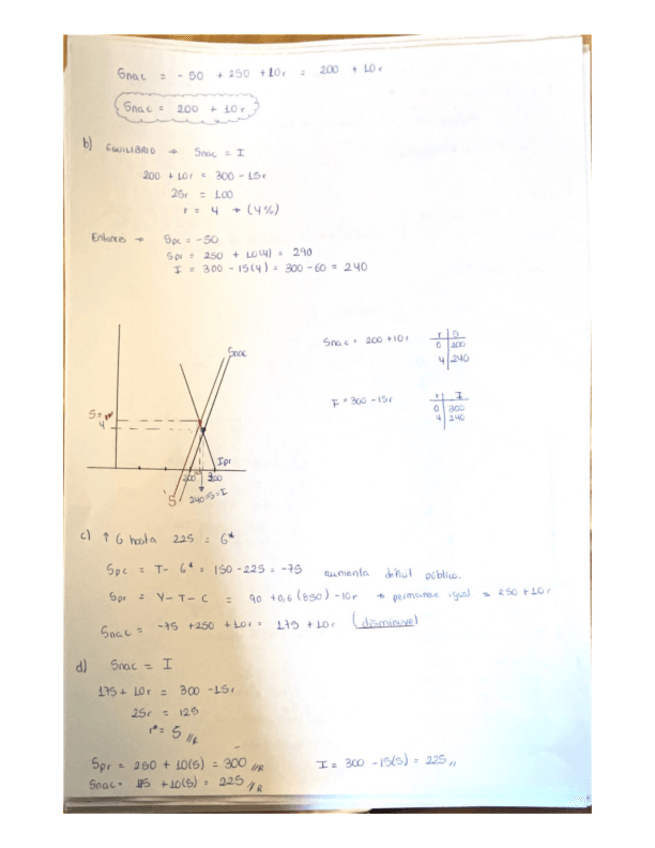 Snac = - 50 + 250 + 10r = 200 + 10r
Snac = 200 + 10r
b) EQUILIBRIO → Snac = I
200 + 10r = 300 - 15r
25r = 100
r = 4 → (4%)
Entonces → Spc = -50
Spr = 250 + 10(4) = 290
I = 300 - 15(4) = 300 - 60 = 240
Snac = 200 + 10r
r S
0 200
4 240
I = 300 - 15r
r I
0 300
4 240
Snac
5 =
4
Ipr
200 300
S 240 = S = I
c) ↑ G hasta 225 = G*
Spc = T - G* = 150 - 225 = -75 aumenta déficit público.
Spr = Y - T - C = 90 + 0,6 (850) - 10r → permanece igual = 250 + 10r
Snac = -75 + 250 + 10r = 175 + 10r (disminuye)
d) Snac = I
175 + 10r = 300 - 15r
25r = 125
r* = 5 //R
Spr = 250 + 10(5) = 300 //R I = 300 - 15(5) = 225 //
Snac = + 10(5) = 225 //R